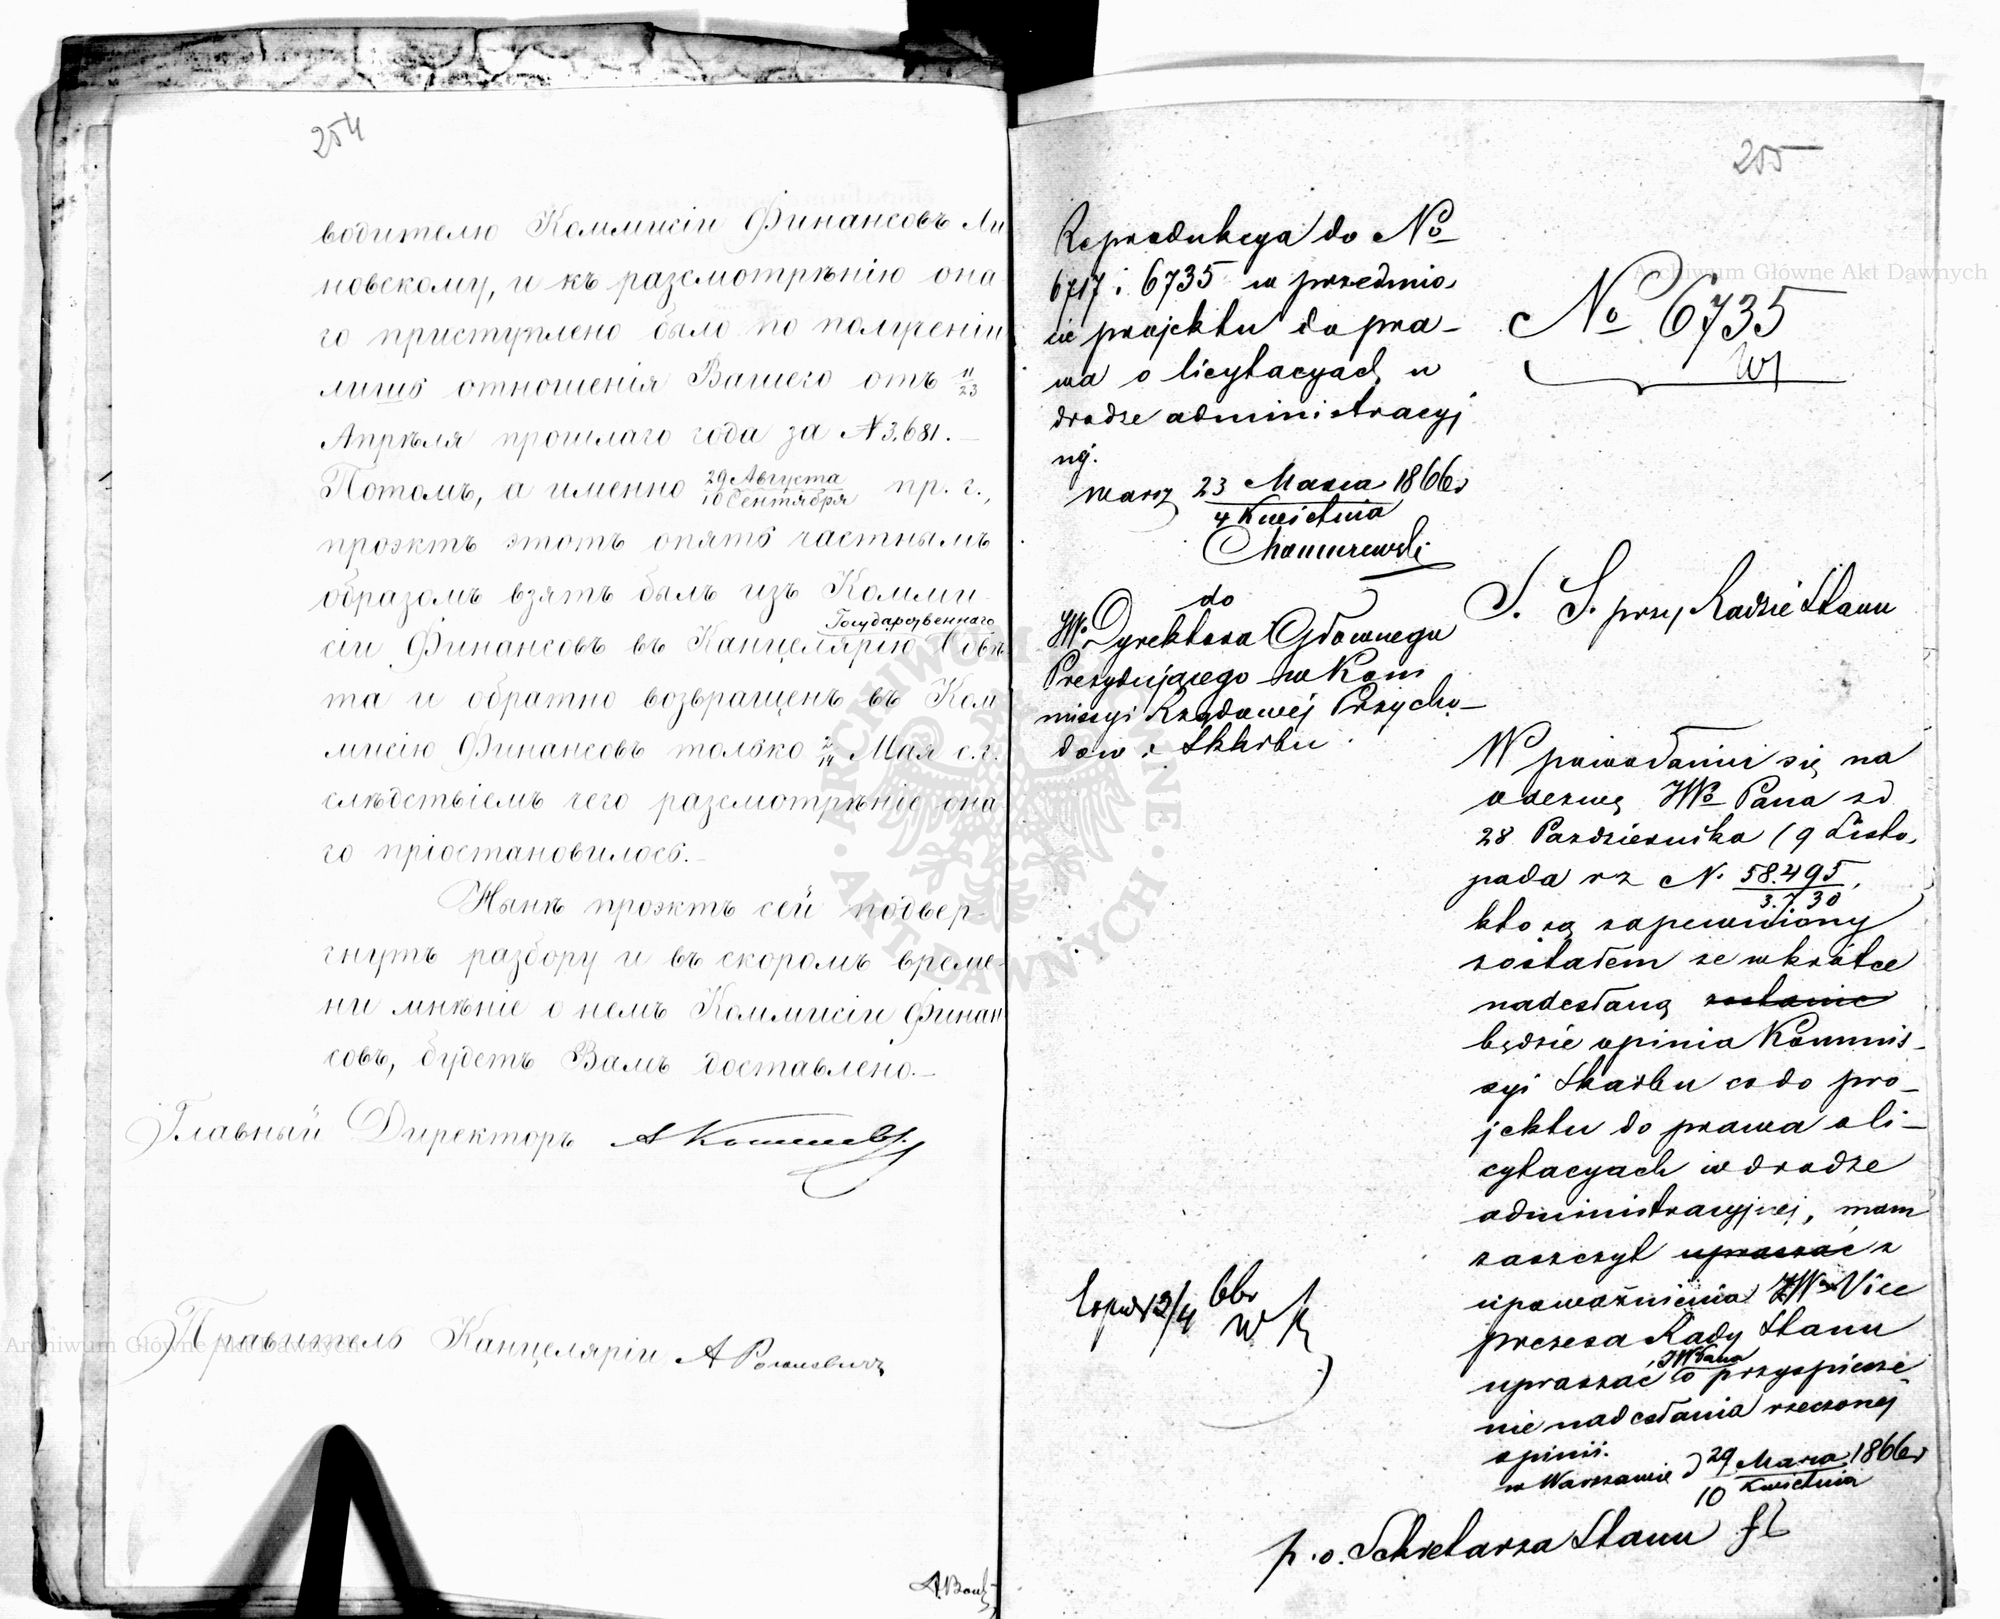 254
водителю Коммисіи Финансовъ Ли
новскому, и къ разсмотрѣнію она
го приступлено было по полученіи
лишь отношенія Вашего отъ 11/23
Апрѣля прошлаго года за № 3.681.—
Потомъ, а именно 29 Августа/10 Сентября пр. г.,
проэктъ этотъ опять частнымъ
образомъ взятъ былъ изъ Комми-
Государственнаго
сіи Финансовъ въ Канцелярію Совѣ
та и обратно возвращенъ въ Ком
мисію Финансовъ только 2/14 Мая с. г.
слѣдствіемъ чего разсмотрѣніе она
го пріостановилось.—
Нынѣ проэктъ сей подвер-
гнутъ разбору и въ скоромъ време-
ни мнѣніе о немъ Коммисіи Финан
совъ, будетъ Вамъ доставлено.—
Главный Директоръ
Правитель Канцеляріи
255
Reprodukcya do No
6717 i 6735 w przedmio-
cie projektu do pra-
wa o licytacyach w
drodze administracyj
néj.
Warsz 23 Marca/4 Kwietnia 1866 r
do
JW. Dyrektora Głównego
Prezydującego w Kom
missyi Rządowéj Przycho-
dów i Skarbu.
No 6735
S. S. przy Radzie Stanu
W powołaniu się na
odezwę JWo Pana zd
28 Października (9 Listo-
pada rz N. 58.495/3.730,
którą zapewniony
zostałem że wkrótce
nadesłaną zostanie
będzie opinia Kommis-
syi Skarbu co do pro-
jektu do prawa o li-
cytacyach w drodze
administracyjnej, mam
zaszczyt upraszać z
upoważnienia JW Vice
prezesa Rady Stanu
JWPana
upraszać o przyspiesze-
nie nadesłania rzeczonej
opinii.
w Warszawie d 29 Marca/10 Kwietnia 1866 r
p. o. Sekretarza Stanu
Archiwum Główne Akt Dawnych
Archiwum Główne Akt Dawnych
ARCHIWUM GŁÓWNE · AKT DAWNYCH ·